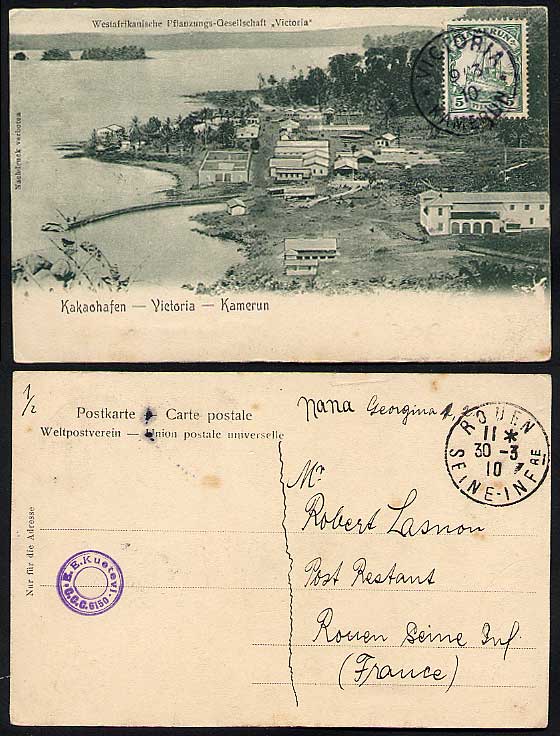 Westafrikanische Pflanzungs-Gesellschaft „Victoria"
KAMERUN
5 5
VICTORIA
KAMERUN
Nachdruck verboten
Kakaohafen — Victoria — Kamerun
1/2
Postkarte Carte postale
Weltpostverein — Union postale universelle
nana Georgina
ROUEN
11 *
30 - 3
10
SEINE-INFRE
Nur für die Adresse
E.E.Kuetevi
C.C.C. 6150
Mr
Robert Lasnon
Post Restant
Rouen Seine Inf.
(France)